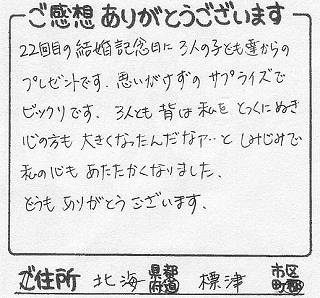 ご感想 ありがとうございます
22回目の結婚記念日に 3人の子ども達からの
プレゼントです。思いがけずの サプライズで
ビックリです。 3人とも 背は 私を とっくにぬき
心の方も 大きくなったんだなァ…と しみじみで
私の心も あたたかくなりました。
どうも ありがとう ございます。
ご住所 北海 都道府県 標津 市区町郡